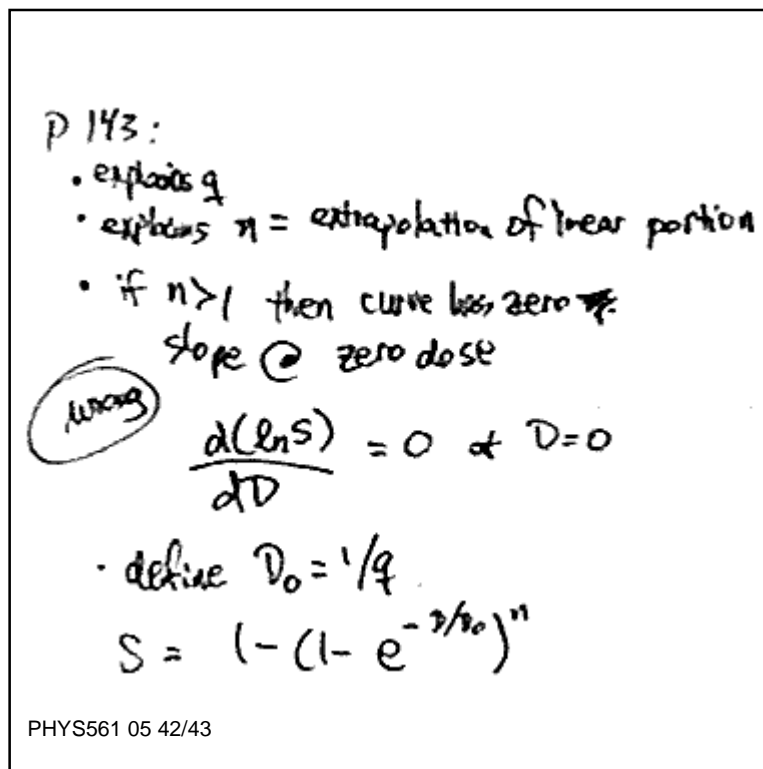 P 143:
• explains q
• explains n = extrapolation of linear portion
• if n>1 then curve has zero
slope @ zero dose
wrong
d(ln S)/dD = 0 at D=0
• define D₀ = 1/q
S = 1-(1- e^(-D/D₀))^n
PHYS561 05 42/43